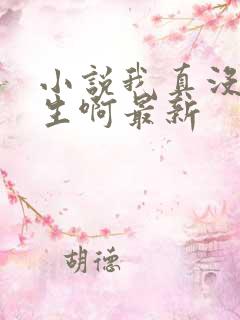 小說我真沒
生啊最新
胡德